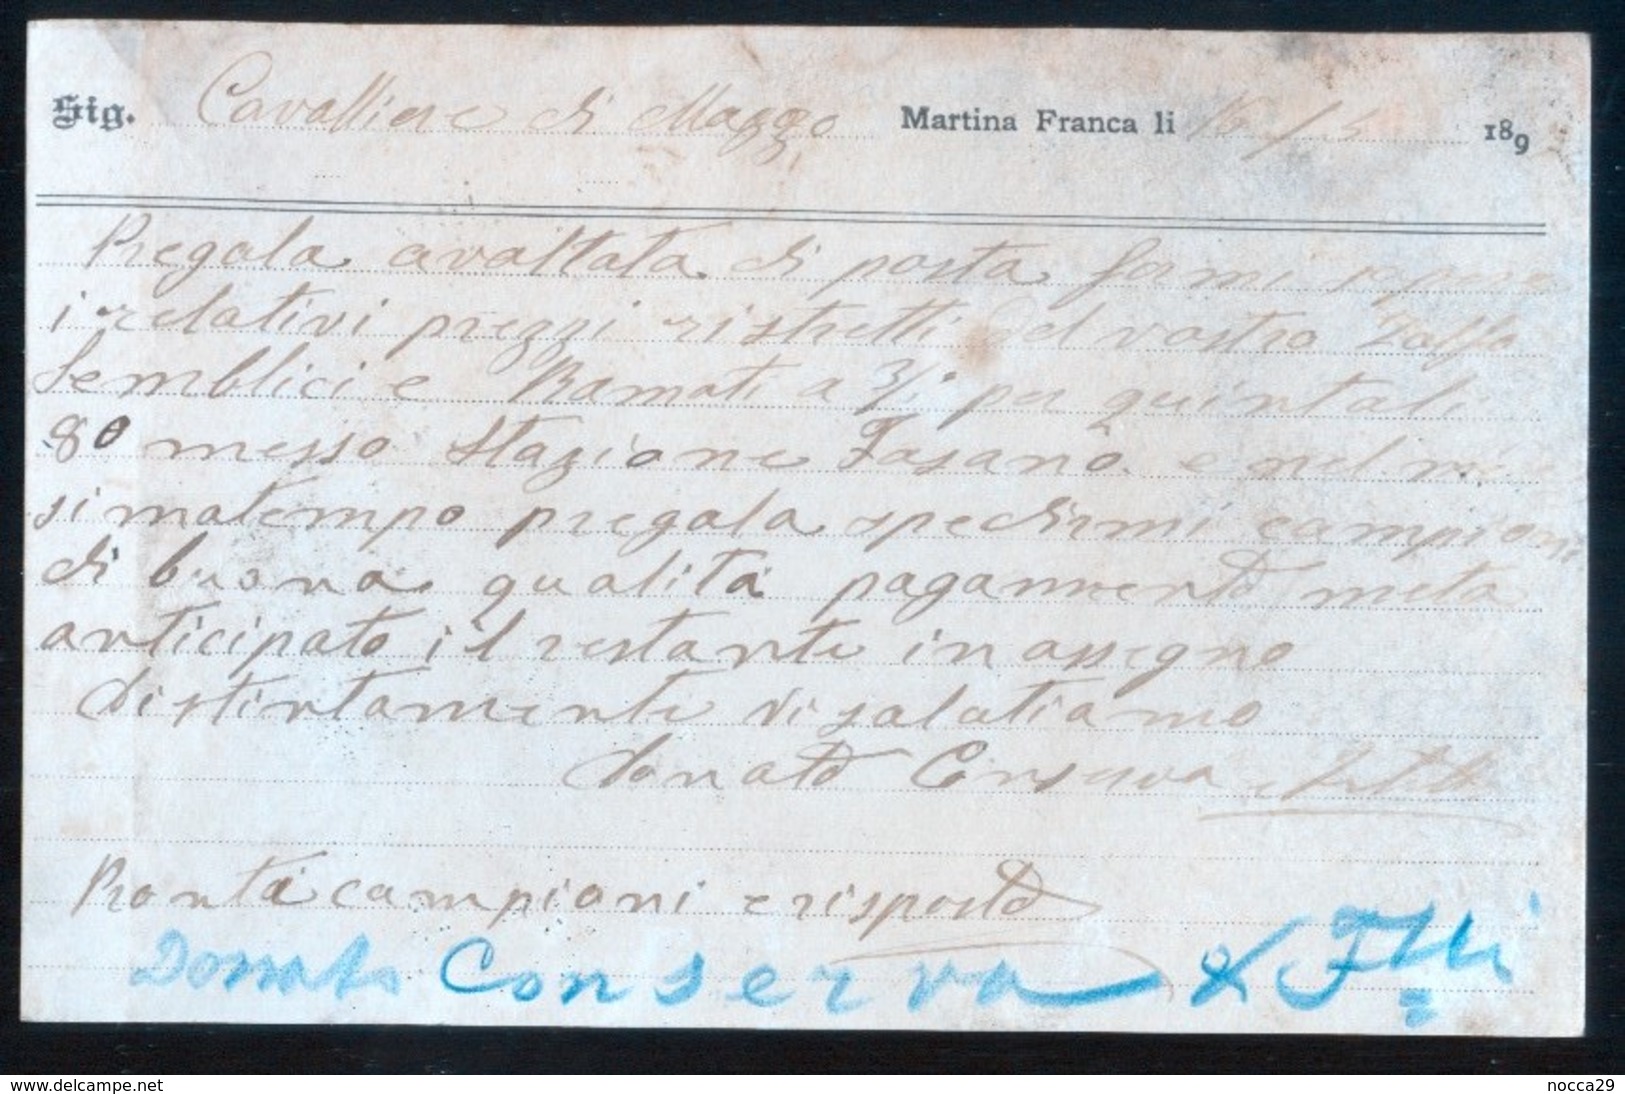 Sig. Cavalliere di Mazzo Martina Franca li 16/3 189
Pregola avoltata di posta farmi sapere
i relativi prezzi ristretti del vostro Zolfo
Semblici e Ramati a 3/i per quintali
80 messo Stazione Fasano e nel mede
simatempo pregola spedirmi campioni
di buona qualità pagamento metà
anticipato il restante in assegno
distintamente vi salutiamo
Donato Conserva e Fratelli
Pronta campioni e risposta
Donato Conserva & Flli
www.delcampe.net nocca29